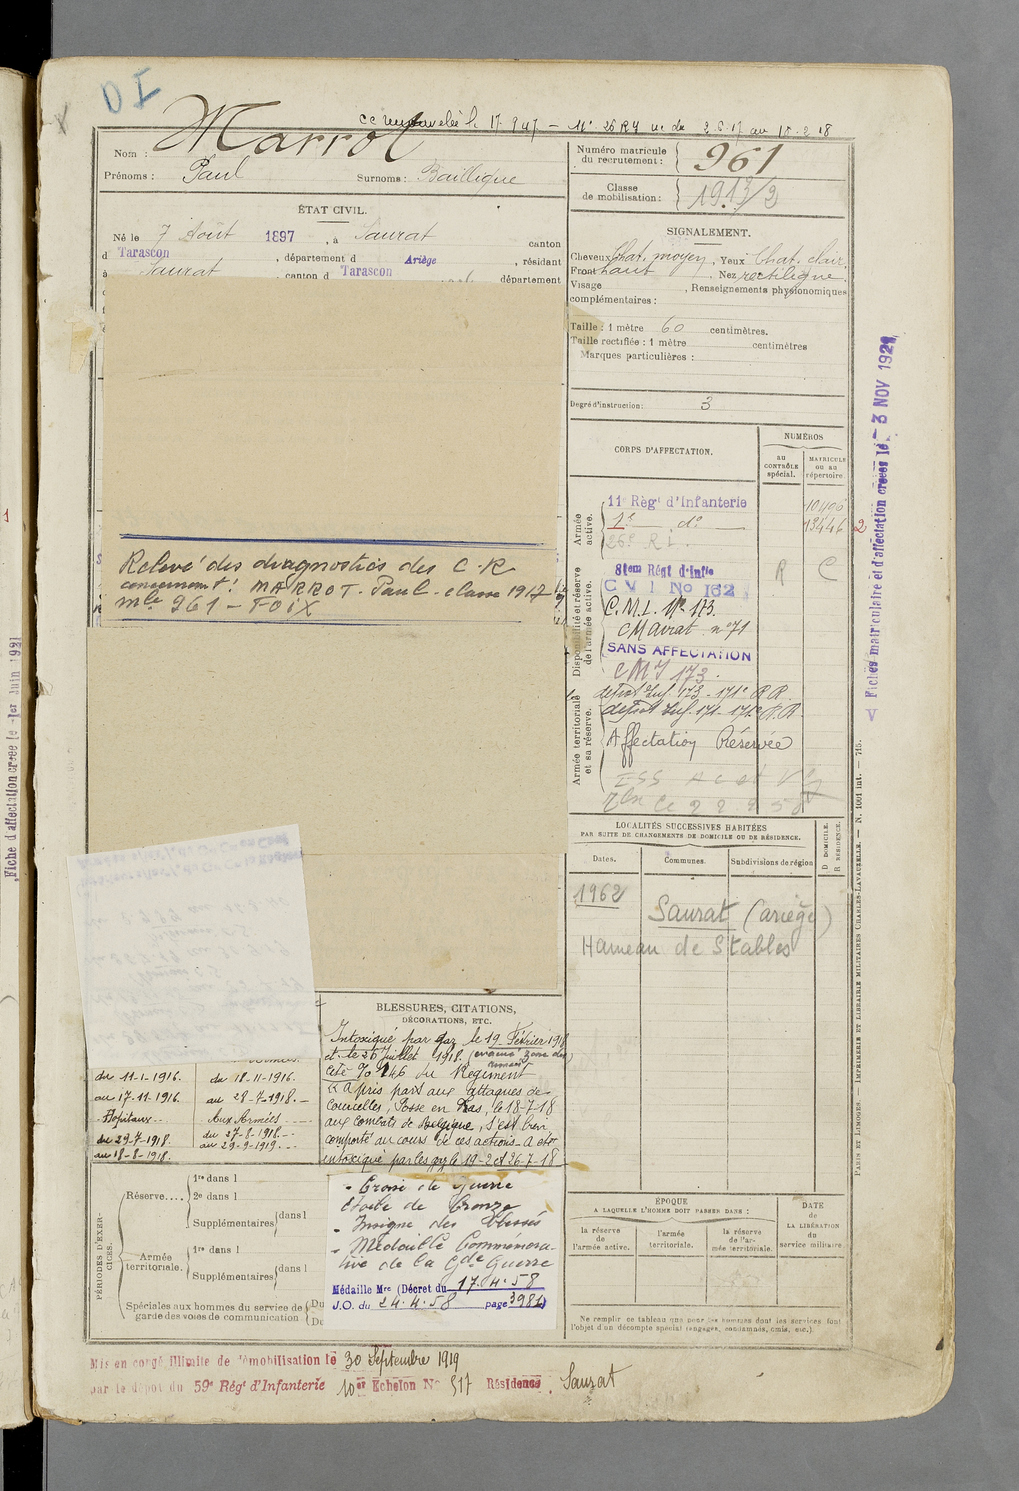 DI
cc renouvelée le 17.9.47 — Mt 26 RI
Marrot
Nom :
Prénoms : Paul Surnoms : Baillique
Numéro matricule
du recrutement : 961
Classe
de mobilisation : 1913/2
ÉTAT CIVIL.
Né le 7 Août 1897, à Saurat canton
d Tarascon, département d Ariège, résidant
à Saurat, canton d Tarascon département
SIGNALEMENT.
Cheveux Chat. moyen, Yeux Chat. clair,
Front haut, Nez rectiligne,
Visage , Renseignements physionomiques
complémentaires :
Taille : 1 mètre 60 centimètres.
Taille rectifiée : 1 mètre centimètres
Marques particulières :
Degré d'instruction : 3
Relevé des diagnostics des C.R
concernant : MARROT - Paul - classe 1917
mle 961 - FOIX
CORPS D'AFFECTATION.
NUMÉROS
au
CONTRÔLE
spécial.
MATRICULE
ou au
répertoire.
Armée
active.
11e Régt d'Infanterie
1e do
13446 2
26e R.I.
Disponibilité et réserve
de l'armée active.
8tem Régt d'Infie R C
C V I No 162
C.M.I. No 173
CM Avrat no 71
SANS AFFECTATION
CMI 173.
Armée territoriale
et sa réserve.
dépôt Inf. 173 - 171e R.R.
dépôt Inf. 171 - 171e R.R.
Affectation Réservée
LOCALITÉS SUCCESSIVES HABITÉES
PAR SUITE DE CHANGEMENTS DE DOMICILE OU DE RÉSIDENCE.
Dates. Communes. Subdivisions de région
D DOMICILE.
R RÉSIDENCE.
1962
Saurat (ariège)
Hameau de Stables
BLESSURES, CITATIONS,
DÉCORATIONS, ETC.
Intoxiqué par gaz le 19 Février 1918
et le 26 Juillet 1918.
Cité %o 146 du Régiment
"a pris part aux attaques de
Courcelles, Fosse en Bas, le 18-7-18
aux combats de Belgique, s'est bien
comporté au cours de ces actions - a été
intoxiqué par les gaz le 19-2 et 26-7-18
- Croix de guerre
étoile de bronze
- Insigne des blessés
- Médaille Commémora-
tive de la Gde Guerre
Médaille Mre (Décret du 17.4.58
J.O. du 24.4.58 page 3981)
du 11-1-1916. du 18-11-1916.
au 17-11-1916. au 28-7-1918.
Hôpitaux Aux Armées
du 29-7-1918. du 27-8-1918.
au 18-8-1918. au 29-9-1919.
PÉRIODES D'EXER-
CICES.
Réserve....
1re dans l
2e dans l
Supplémentaires dans l
Armée
territoriale.
1re dans l
Supplémentaires dans l
Spéciales aux hommes du service de
garde des voies de communication
Du
Du
ÉPOQUE
A LAQUELLE L'HOMME DOIT PASSER DANS :
la réserve
de
l'armée active.
l'armée
territoriale.
la réserve
de l'ar-
mée territoriale.
DATE
de
LA LIBÉRATION
du
service militaire
Ne remplir ce tableau que pour les hommes dont les services font
l'objet d'un décompte spécial (engagés, condamnés, omis, etc.).
Mis en congé illimité de démobilisation le 30 Septembre 1919
par le dépôt du 59e Régt d'Infanterie 10er Echelon No 517 Résidence, Saurat
V Fiches matriculaire et d'affectation créées le - 3 NOV 1921
PARIS ET LIMOGES. — IMPRIMERIE ET LIBRAIRIE MILITAIRES CHARLES-LAVAUZELLE. — N. 1001 int. — 715.
Fiche d'affectation créée le 1er Juin 1921